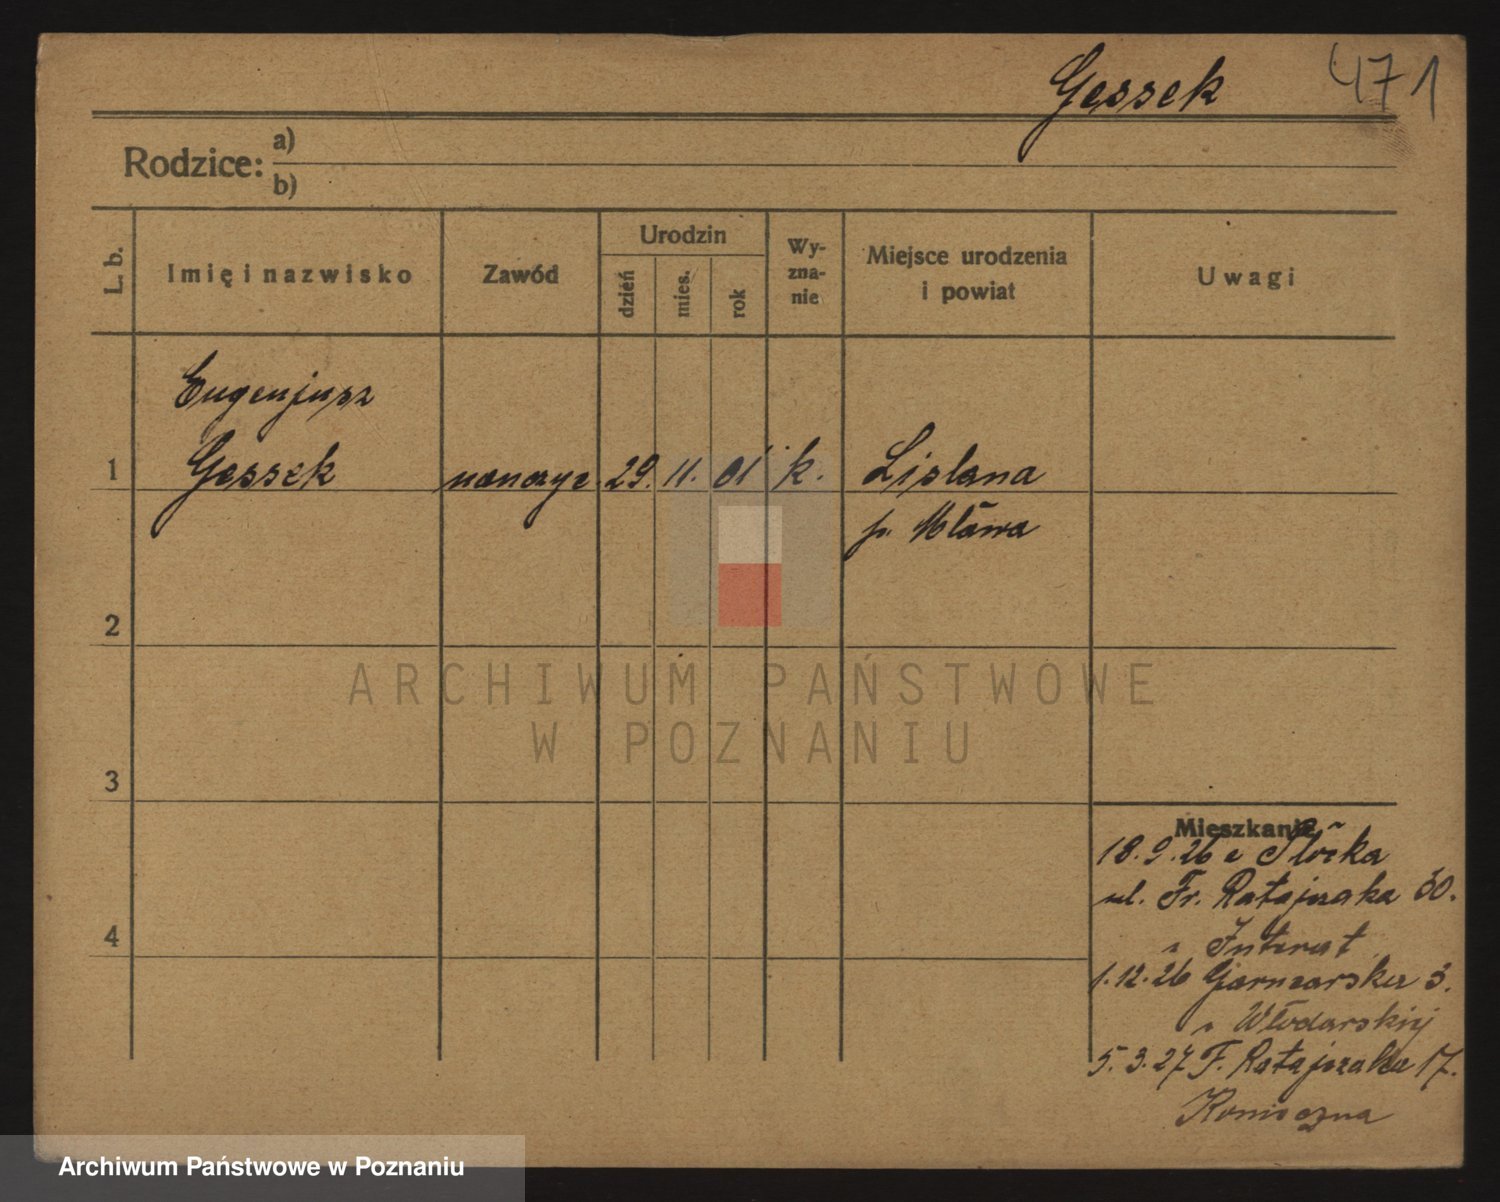 Gessek 471
Rodzice: a)
b)
L. b.
Imię i nazwisko
Zawód
Urodzin
dzień
mies.
rok
Wy-
zna-
nie
Miejsce urodzenia
i powiat
Uwagi
Eugenjusz
1 Gessek nauczyc. 29. 11. 01 k. Lislana
p. Mława
2
3
4
Mieszkanie
18.9.26 z Płocka
ul. Fr. Ratajczaka 30.
Internat
1.12.26 Garncarska 3.
Włodarskiej
5.3.27 F. Ratajczaka 17.
Konieczna
ARCHIWUM PAŃSTWOWE
W POZNANIU
Archiwum Państwowe w Poznaniu